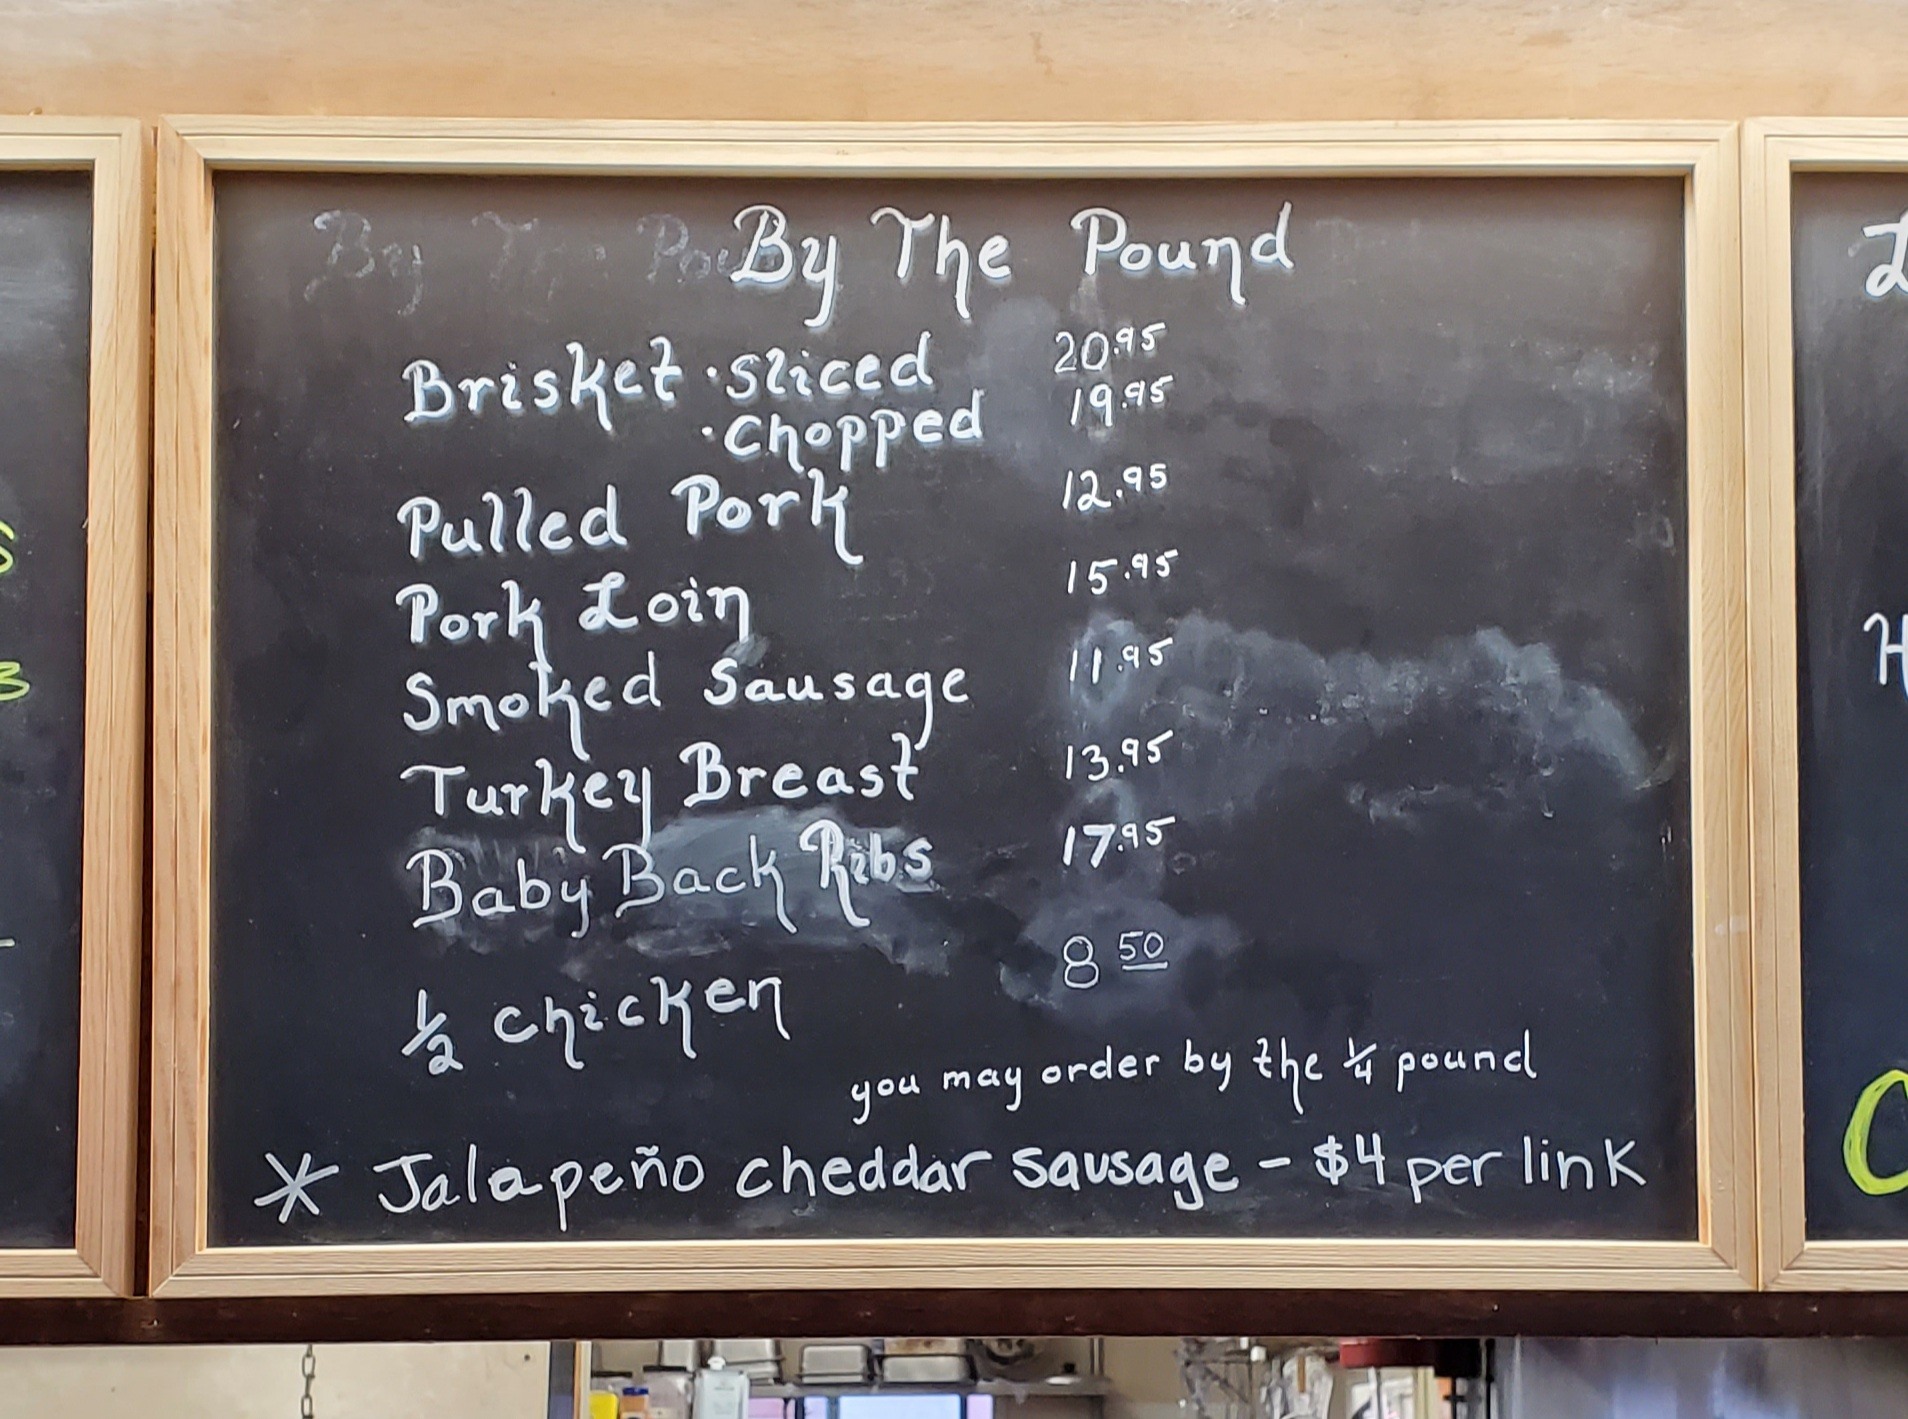 By The Pound
Brisket · sliced 20.95
· chopped 19.95
Pulled Pork 12.95
Pork Loin 15.95
Smoked Sausage 11.95
Turkey Breast 13.95
Baby Back Ribs 17.95
1/2 chicken 8 50
you may order by the 1/4 pound
* Jalapeño cheddar sausage - $4 per link